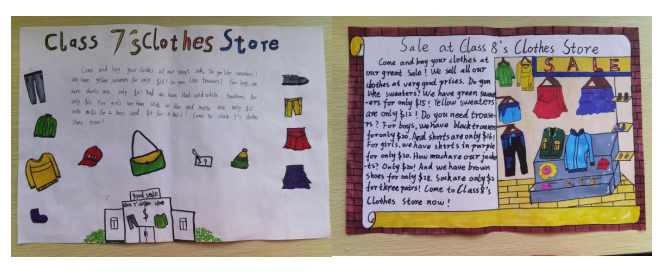 Class 7's Clothes Store
Come and buy your clothes at our great sale. Do you like sweaters?
We have yellow sweaters for only $15! Do you like trousers? For boys, we
have shorts are only $10! And we have black and white trousers for
only $12. For girls we have skirts in blue and purple are only $11!
socks only $2 for 2 pairs and
store now!
$9
good sale
class 7' clothes store
$
Sale at Class 8's Clothes Store
Come and buy your clothes at
our great Sale! We sell all our
clothes at very good prices. Do you
like sweaters? We have green sweat
-ers for only $15! Yellow sweaters
are only $12! Do you need trouse-
rs? For boys, we have black trousers
for only $20. And shorts are only $16!
For girls, we have skirts in purple
for only $20. How much are our jacke
-ts? Only $20! And we have brown
shoes for only $28. Socks are only $2
for three pairs! Come to Class 8's
Clothes store now!
SALE